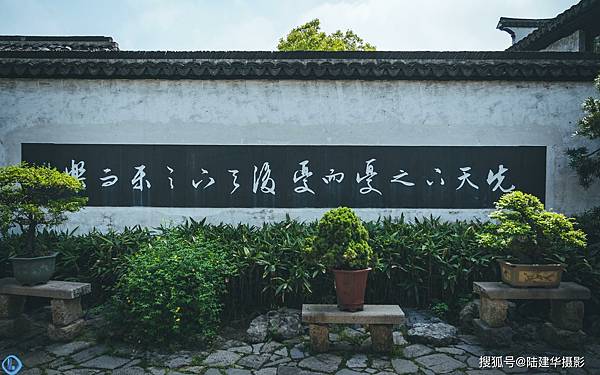 先天下之憂而憂後天下之樂而樂
搜狐号@陆建华摄影